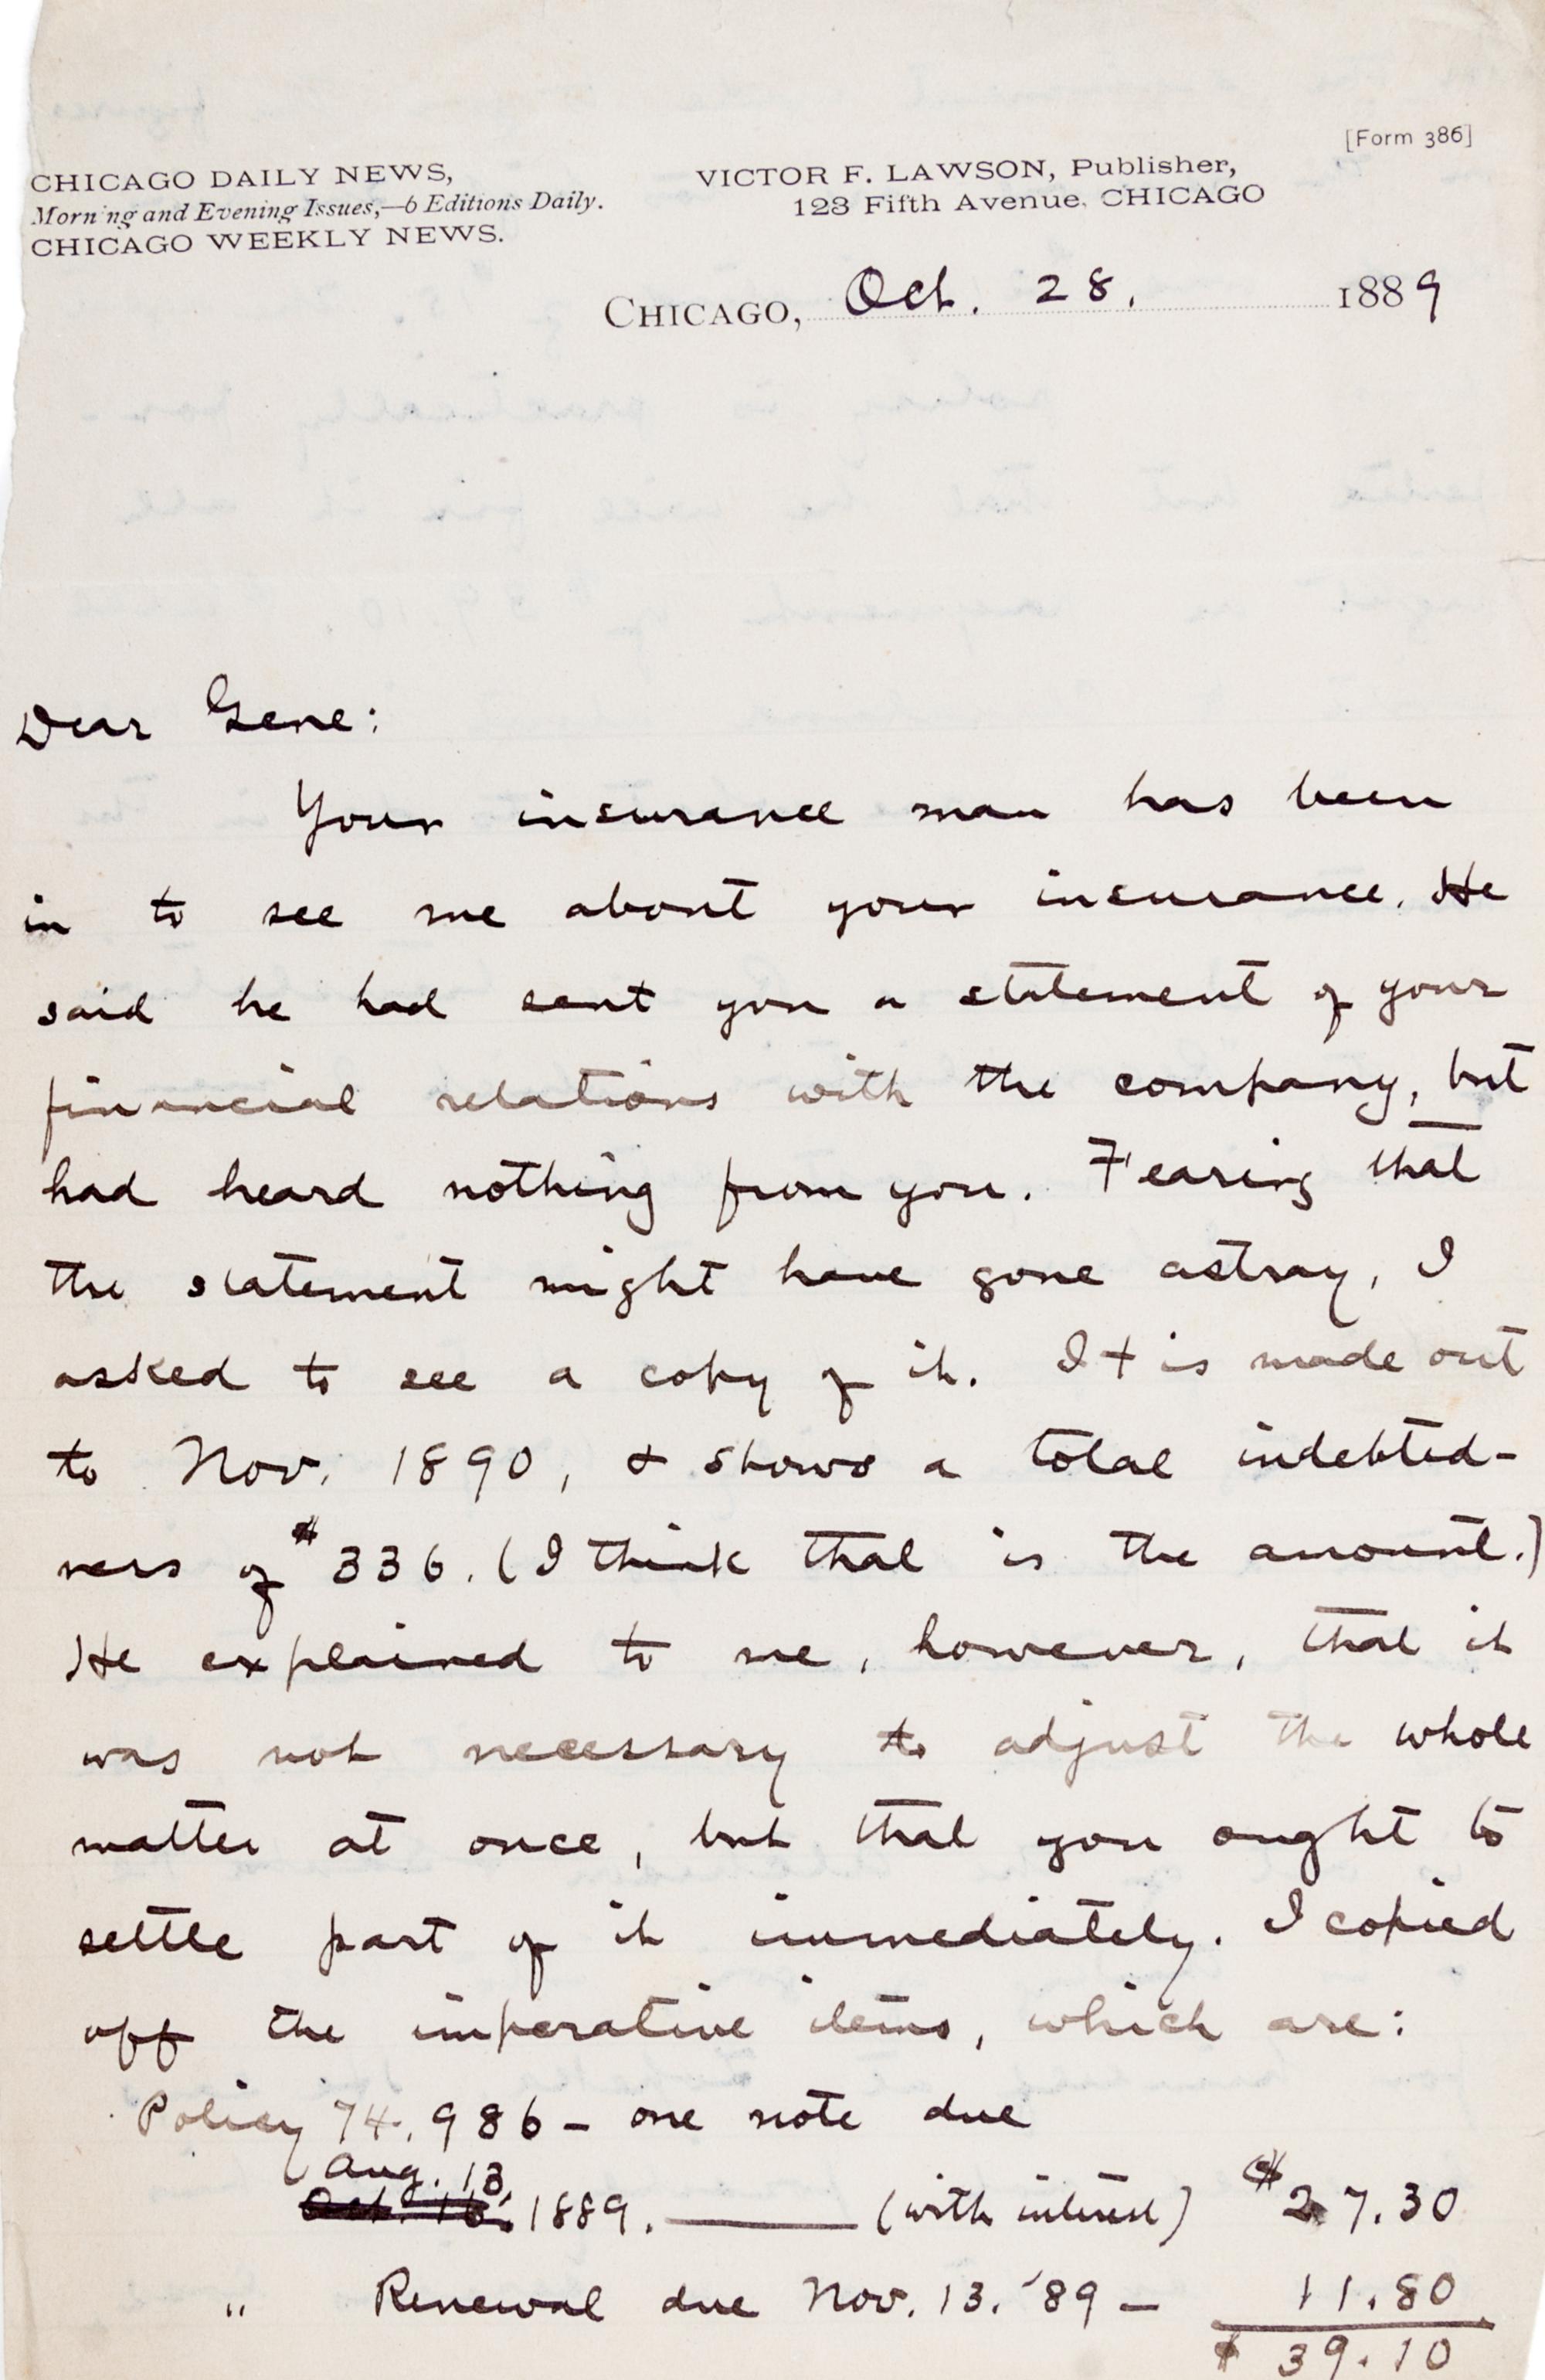 [Form 386]
CHICAGO DAILY NEWS,
Morning and Evening Issues,—6 Editions Daily.
CHICAGO WEEKLY NEWS.
VICTOR F. LAWSON, Publisher,
123 Fifth Avenue, CHICAGO
CHICAGO, Oct. 28, 1889
Dear Gene:
Your insurance man has been
in to see me about your insurance. He
said he had sent you a statement of your
financial relations with the company, but
had heard nothing from you. Fearing that
the statement might have gone astray, I
asked to see a copy of it. It is made out
to Nov. 1890, & shows a total indebted-
ness of $336. (I think that is the amount.)
He explained to me, however, that it
was not necessary to adjust the whole
matter at once, but that you ought to
settle part of it immediately. I copied
off the imperative items, which are:
Policy 74,986 – one note due
Aug. 13,
1889. —— (with interest) $27.30
" Renewal due Nov. 13. '89 – 11.80
$39.10